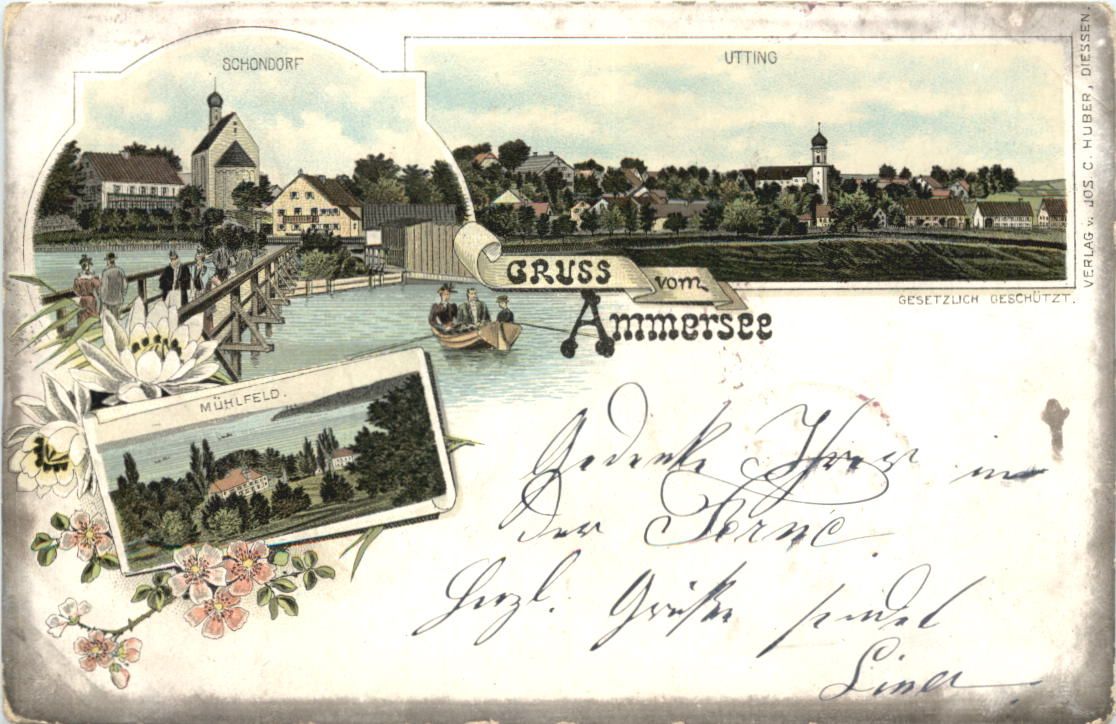 SCHONDORF
UTTING
GRUSS vom
AMMERSEE
GESETZLICH GESCHÜTZT.
VERLAG v. JOS. C. HUBER, DIESSEN.
MÜHLFELD.
Gedenke Ihrer in
der Ferne.
Herzl. Grüße sendet